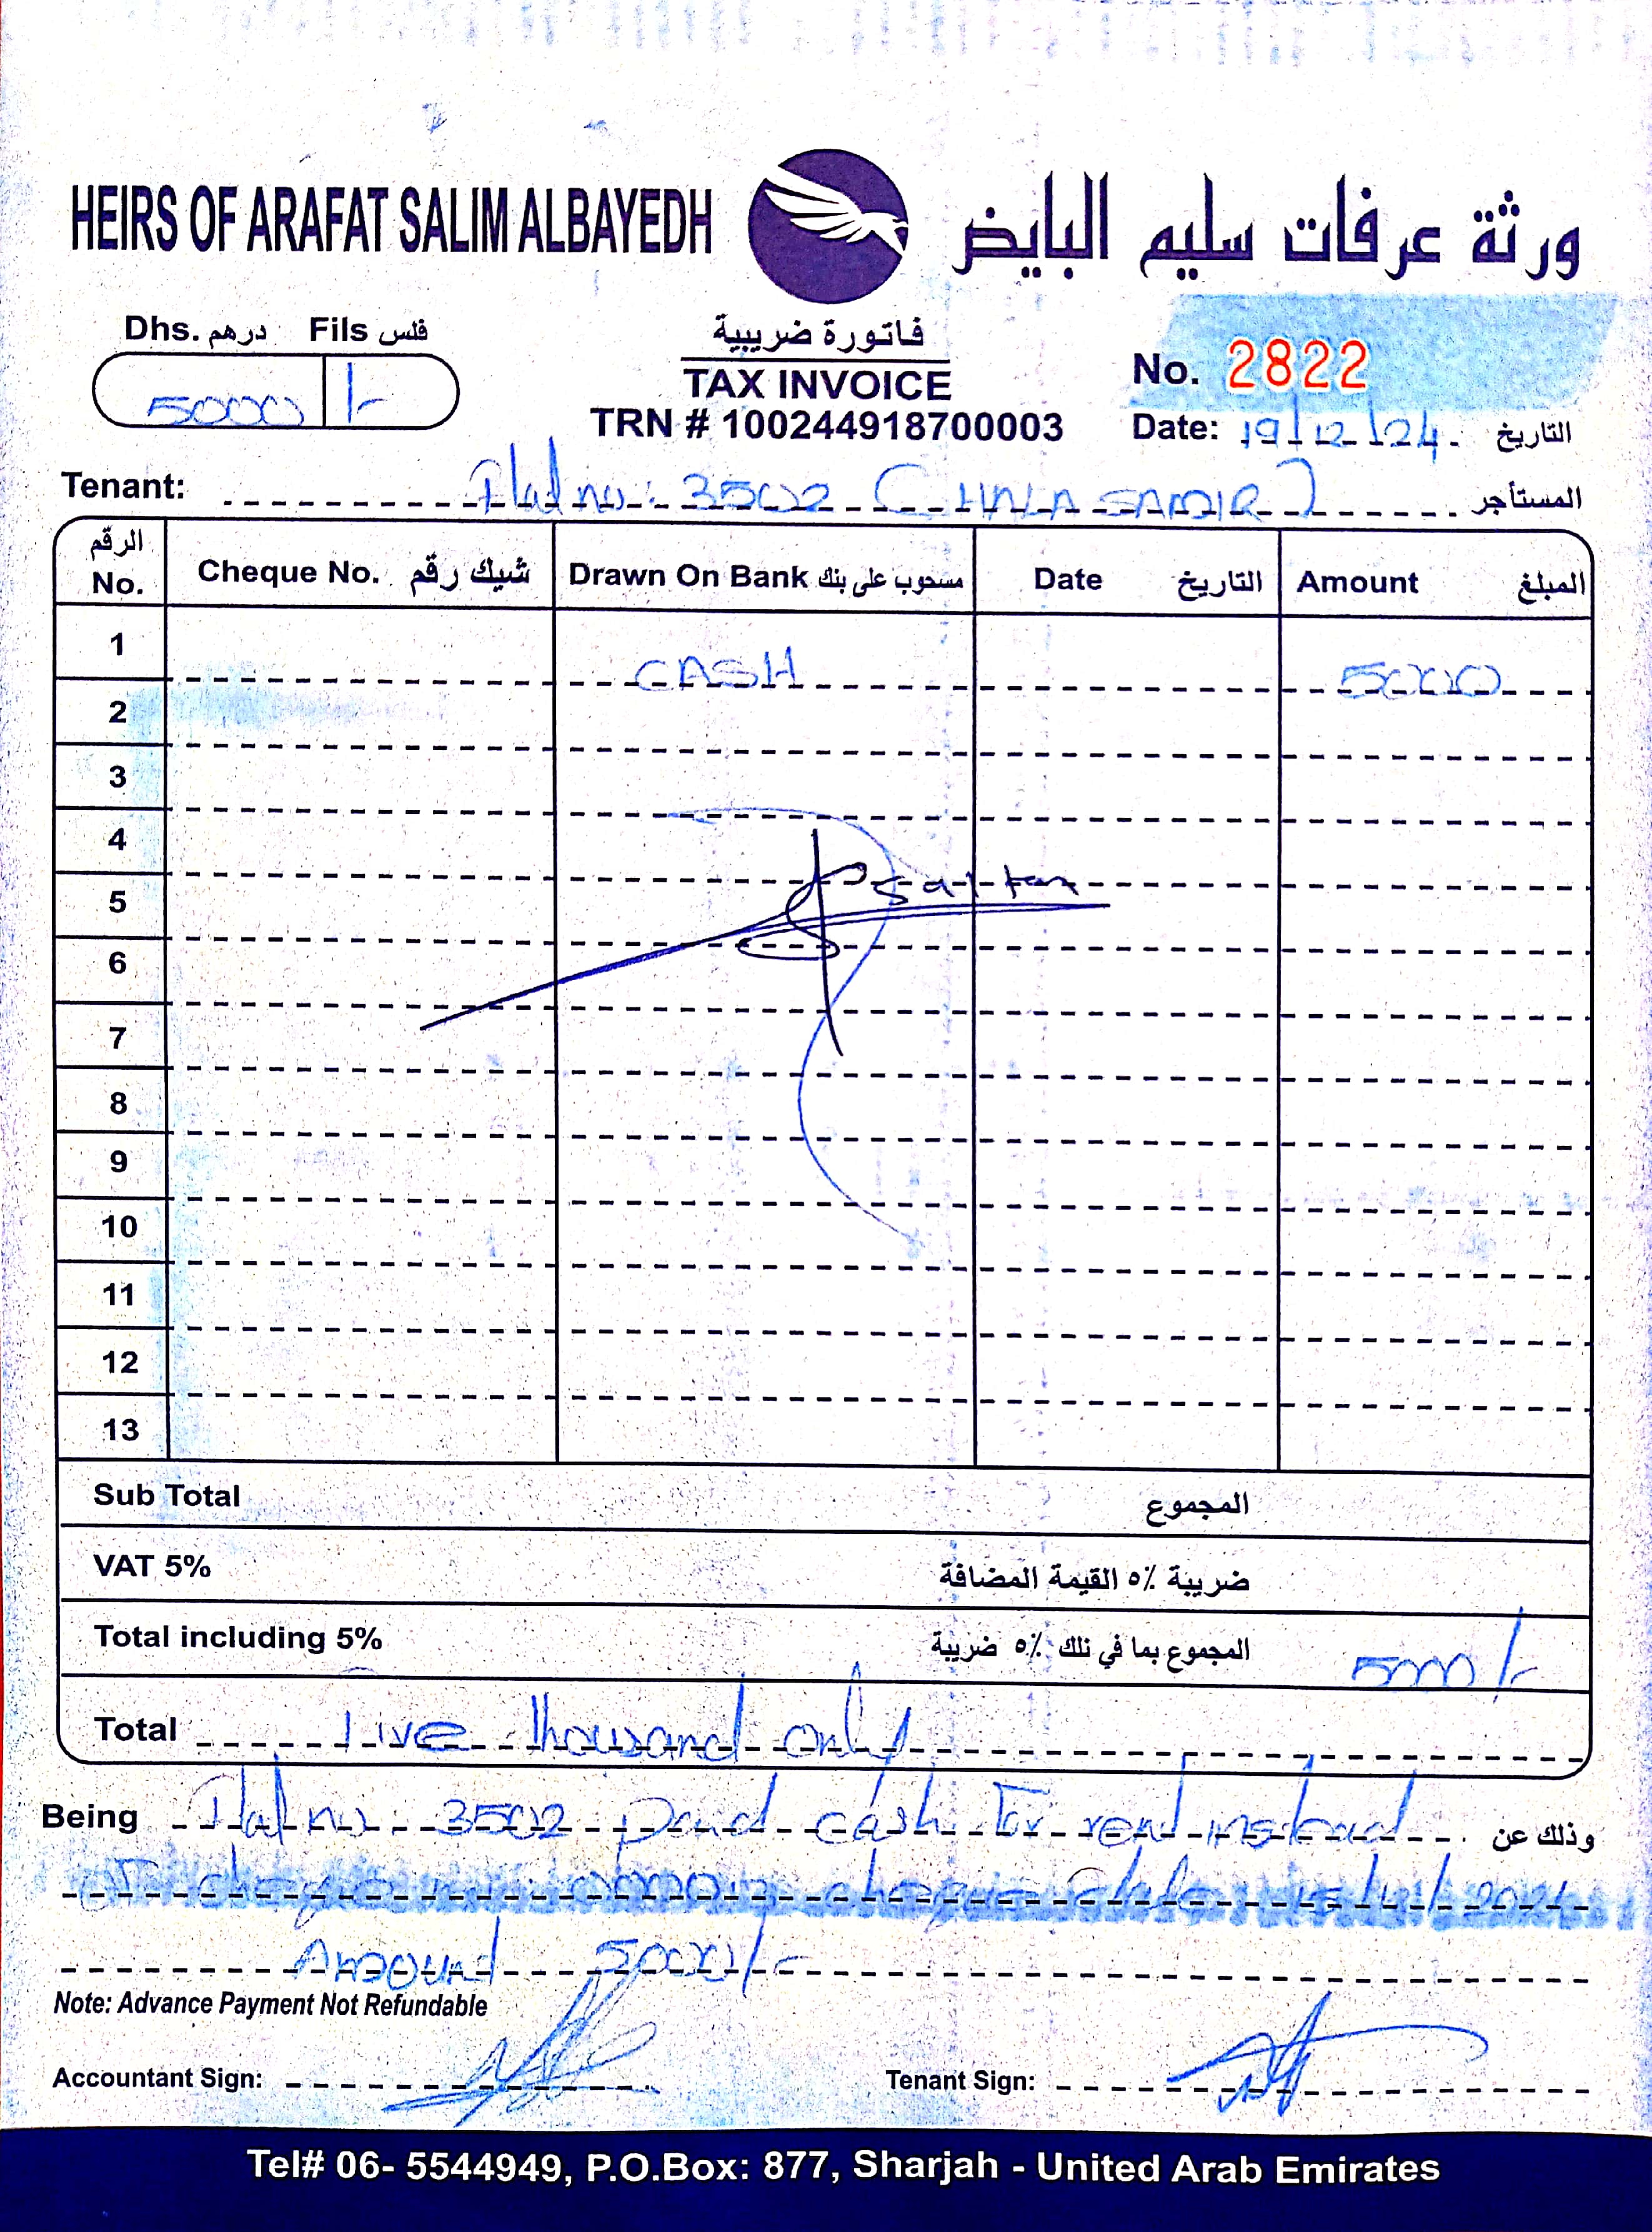 HEIRS OF ARAFAT SALIM ALBAYEDH ورثة عرفات سليم البايض
Dhs. درهم Fils فلس
5000 /-
فاتورة ضريبية
TAX INVOICE
TRN # 100244918700003
No. 2822
Date: 19/12/24 التاريخ
Tenant: Flat no: 3502 (HALA SAMIR) المستأجر
الرقم No. Cheque No. شيك رقم Drawn On Bank مسحوب على بنك Date التاريخ Amount المبلغ
1 CASH 5000
2
3
4
5
6
7
8
9
10
11
12
13
Sub Total المجموع
VAT 5% ضريبة ٥٪ القيمة المضافة
Total including 5% المجموع بما في ذلك ٥٪ ضريبة 5000/-
Total Five thousand only
Being Flat no. 3502 paid cash for rent instead وذلك عن
of cheque no. cheque date
Amound 5000/-
Note: Advance Payment Not Refundable
Accountant Sign: Tenant Sign:
Tel# 06- 5544949, P.O.Box: 877, Sharjah - United Arab Emirates